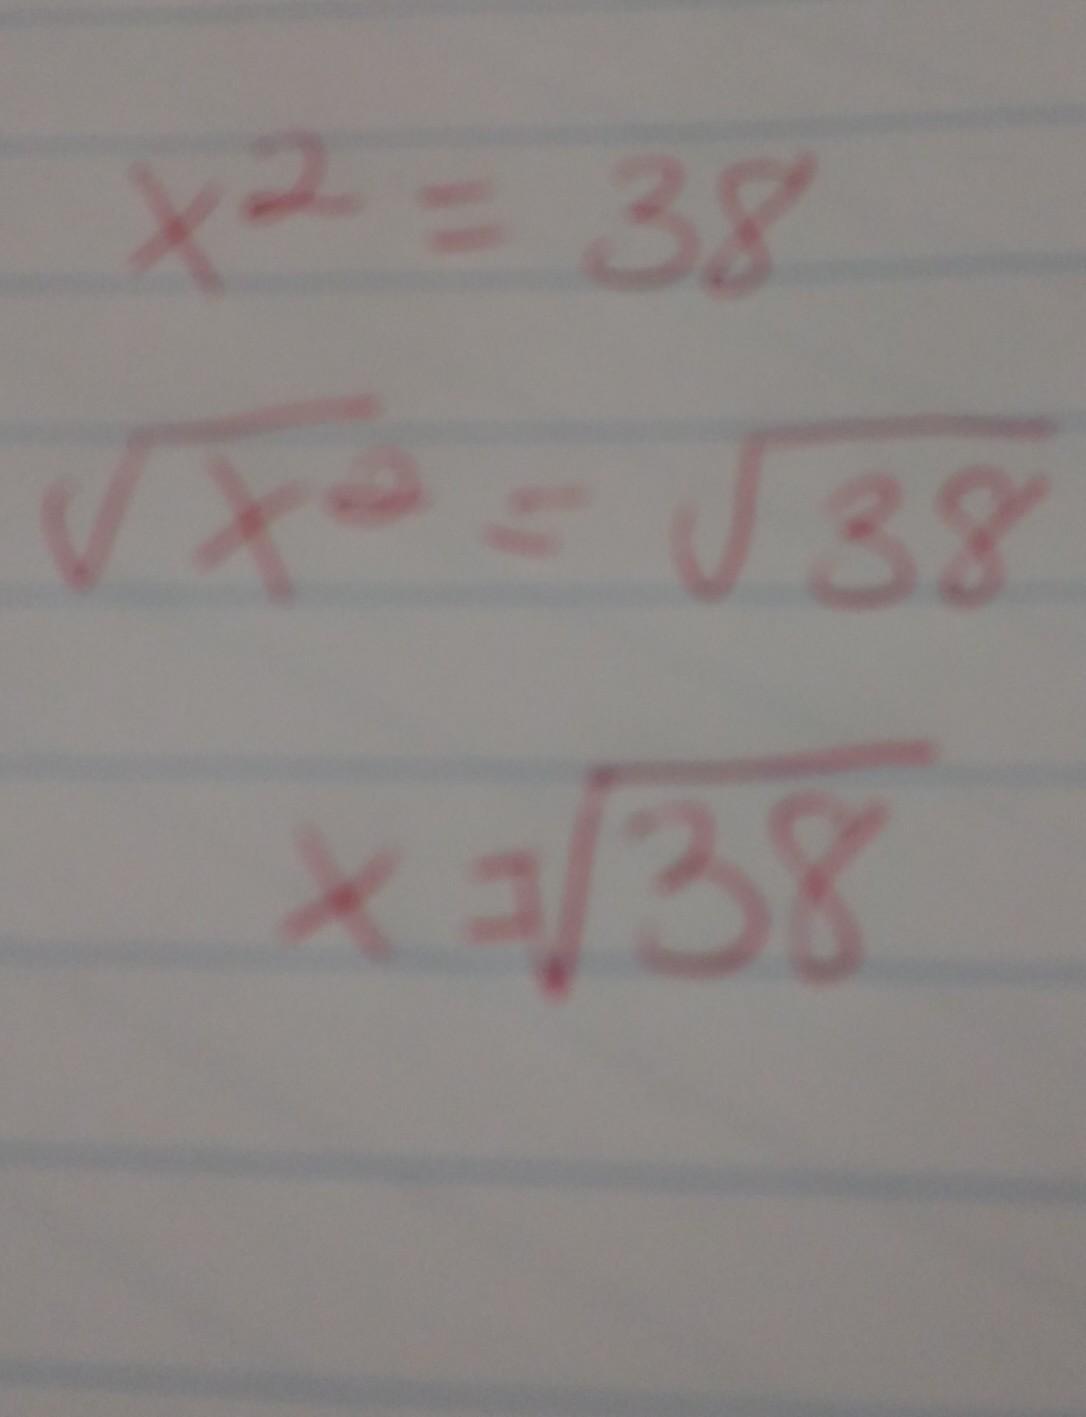 x² = 38
√x² = √38
x = √38